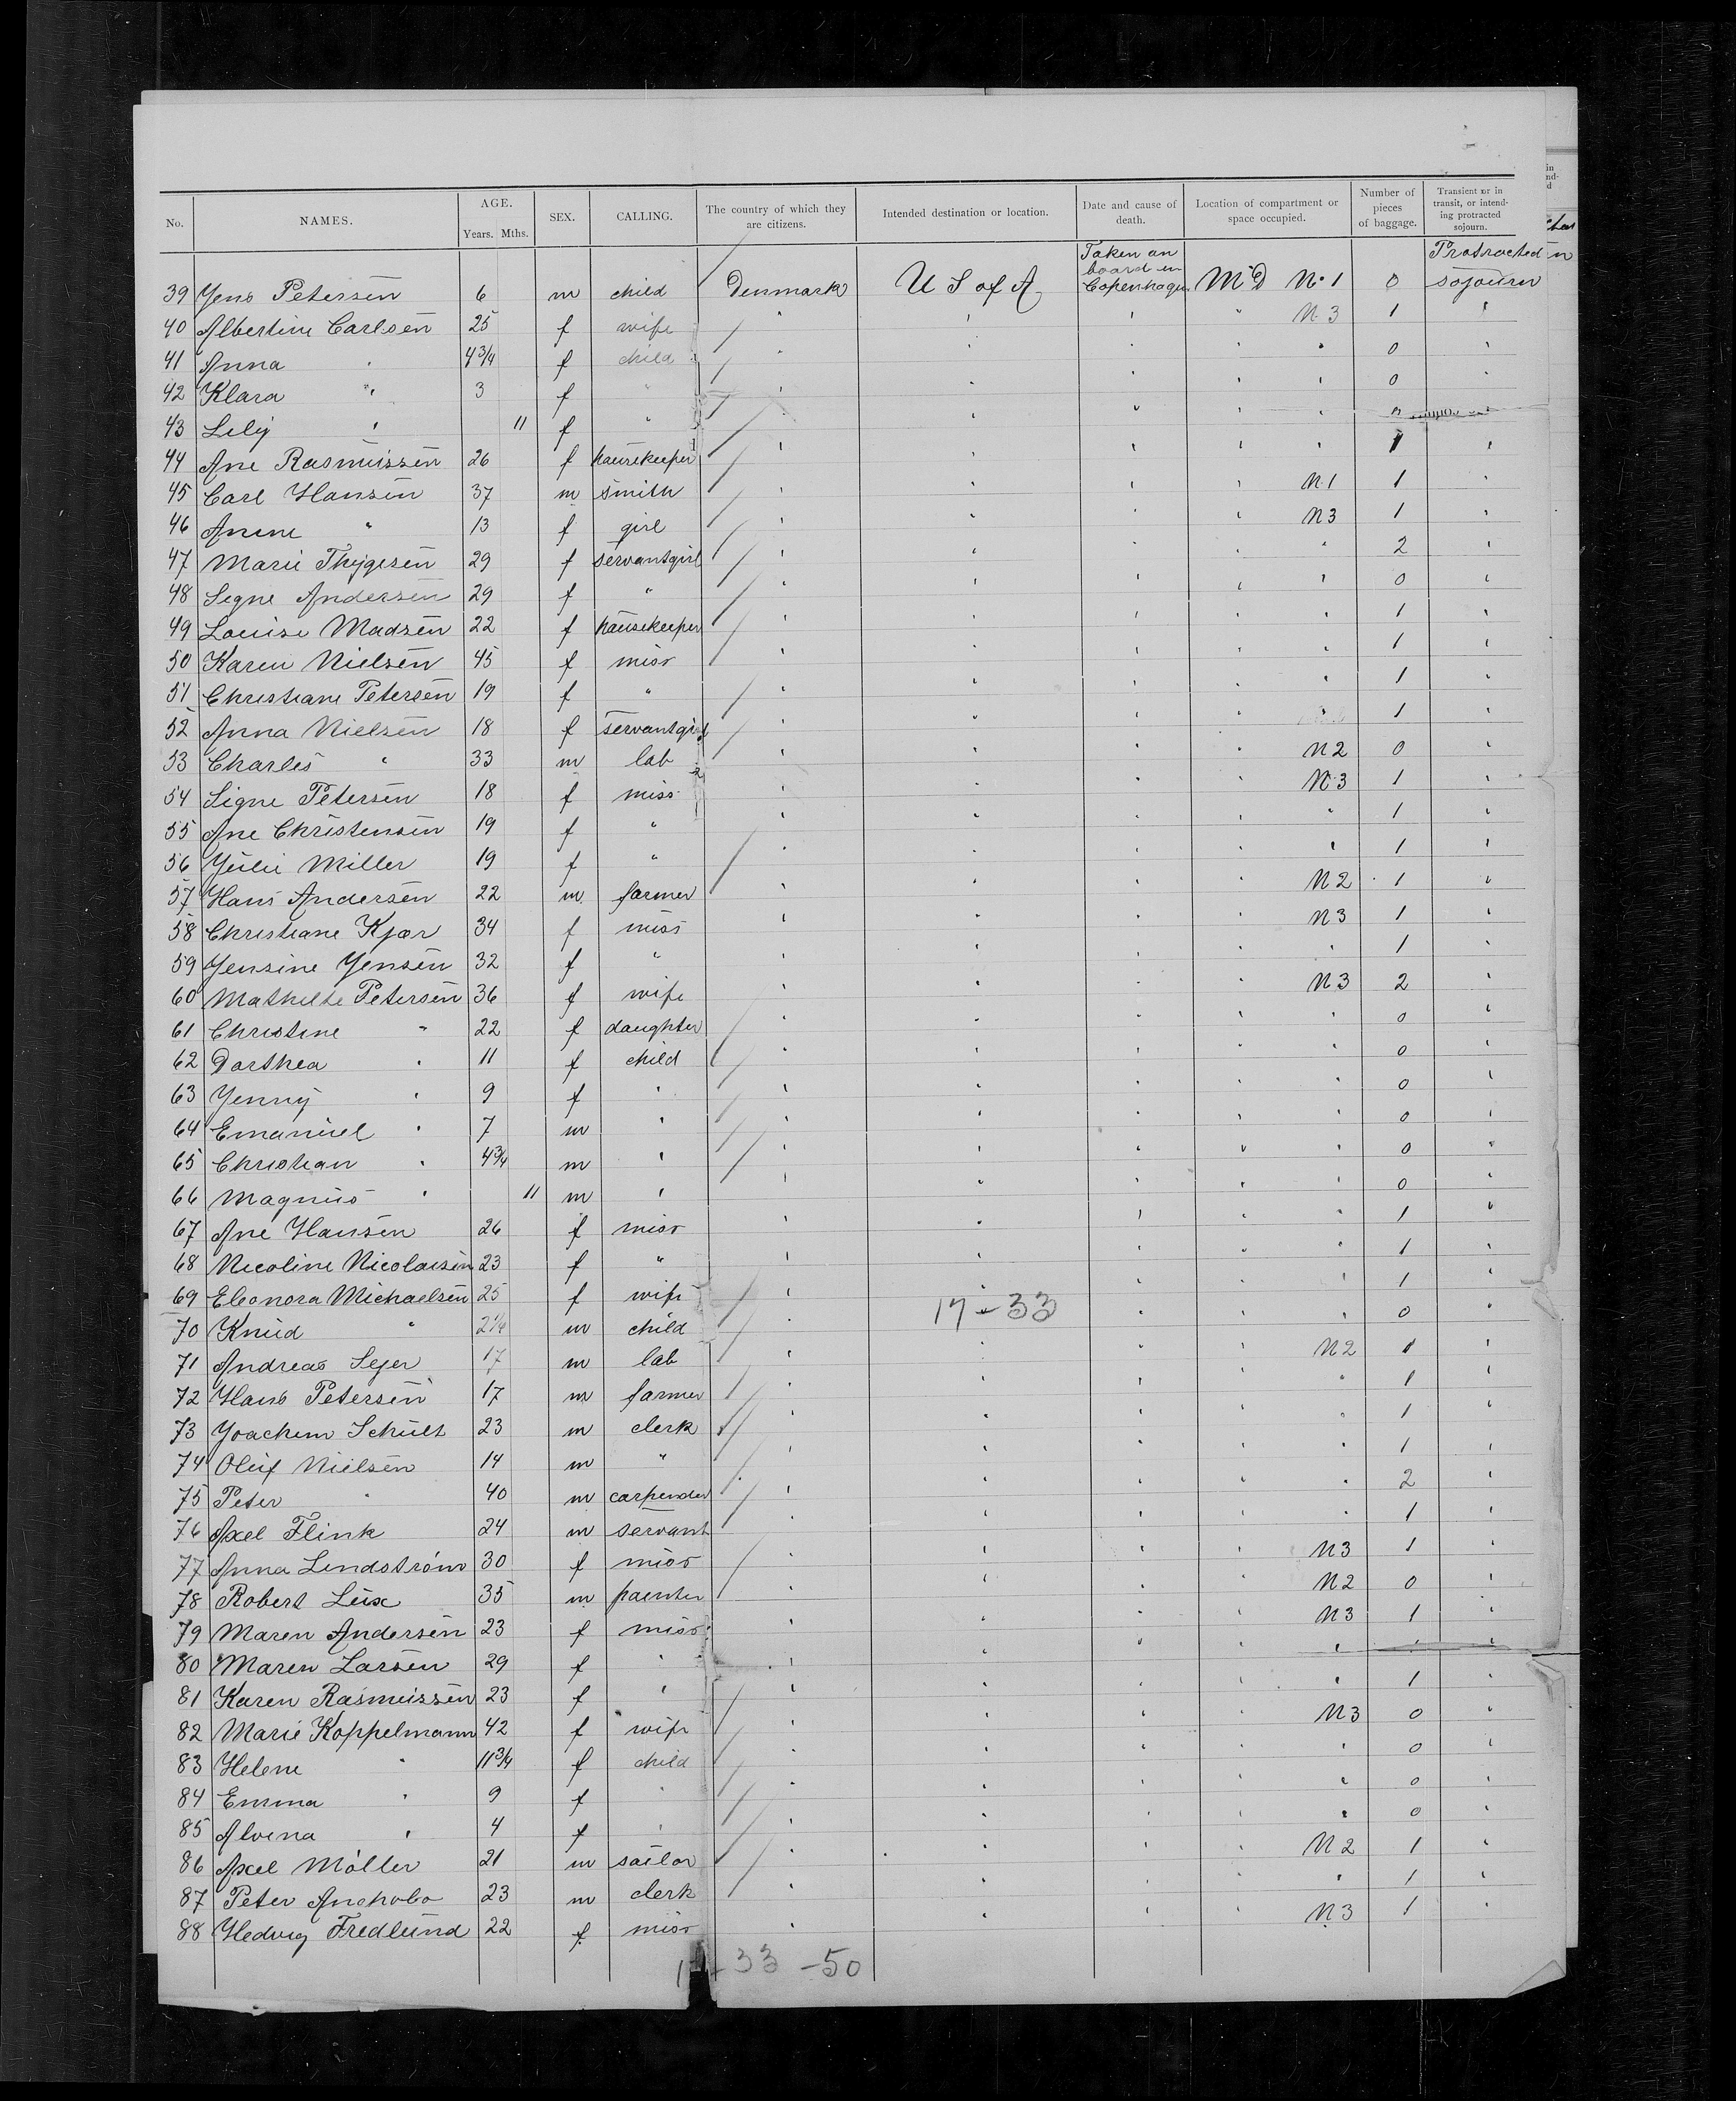 No. NAMES. AGE. Years. Mths. SEX. CALLING. The country of which they are citizens. Intended destination or location. Date and cause of death. Location of compartment or space occupied. Number of pieces of baggage. Transient or in transit, or intending protracted sojourn.
39 Yens Petersen 6 m child Denmark U S of A Taken an board in Copenhagen M D No 1 0 Protracted sojourn
40 Albertine Carlsen 25 f wife " " " " N 3 1 "
41 Anna " 4 3/4 f child " " " " " 0 "
42 Klara " 3 f " " " " " " 0 "
43 Lily " 11 f " " " " " "
44 Ane Rasmussen 26 f hausekeeper " " " " " 1 "
45 Carl Hansen 37 m smith " " " " N 1 1 "
46 Anine " 13 f girl " " " " N 3 1 "
47 Marie Thygesen 29 f servantgirl " " " " " 2 "
48 Segne Andersen 29 f " " " " " " 0 "
49 Louise Madsen 22 f hausekeeper " " " " " 1 "
50 Karen Nielsen 45 f miss " " " " " 1 "
51 Christiane Petersen 19 f " " " " " " 1 "
52 Anna Nielsen 18 f servantgirl " " " " " 1 "
53 Charles " 33 m lab " " " " N 2 0 "
54 Signe Petersen 18 f miss " " " " N 3 1 "
55 Ane Christensen 19 f " " " " " " 1 "
56 Yulie Miller 19 f " " " " " " 1 "
57 Hans Andersen 22 m farmer " " " " N 2 1 "
58 Christiane Kjær 34 f miss " " " " N 3 1 "
59 Yensine Yensen 32 f " " " " " " 1 "
60 Mathilde Petersen 36 f wife " " " " N 3 2 "
61 Christine " 22 f daughter " " " " " 0 "
62 Dorthea " 11 f child " " " " " 0 "
63 Yenny " 9 f " " " " " " 0 "
64 Emanuel " 7 m " " " " " " 0 "
65 Christian " 4 3/4 m " " " " " " 0 "
66 Magnus " 11 m " " " " " " 0 "
67 Ane Hansen 26 f miss " " " " " 1 "
68 Nicoline Nicolaisen 23 f " " " " " " 1 "
69 Eleonora Michaelsen 25 f wife " " " " " 1 "
17-33
70 Knud " 2 1/4 m child " " " " 0 "
71 Andreas Sejer 17 m lab " " " " N 2 1 "
72 Hans Petersen 17 m farmer " " " " " 1 "
73 Yoachim Schult 23 m clerk " " " " " 1 "
74 Oluf Nielsen 14 m " " " " " " 1 "
75 Peter " 40 m carpender " " " " " 2 "
76 Axel Flink 24 m servant " " " " " 1 "
77 Anna Lindström 30 f miss " " " " N 3 1 "
78 Robert Lux 35 m painter " " " " N 2 0 "
79 Maren Andersen 23 f miss " " " " N 3 1 "
80 Maren Larsen 29 f " " " " " " "
81 Karen Rasmussen 23 f " " " " " " 1 "
82 Marie Koppelmann 42 f wife " " " " N 3 0 "
83 Helene " 11 3/4 f child " " " " " 0 "
84 Emma " 9 f " " " " " " 0 "
85 Alvina " 4 f " " " " " " 0 "
86 Axel Möller 21 m sailor " " " " N 2 1 "
87 Peter 23 m clerk " " " " " 1 "
88 Hedvig Fredlund 22 f miss " " " " N 3 1 "
33 - 50